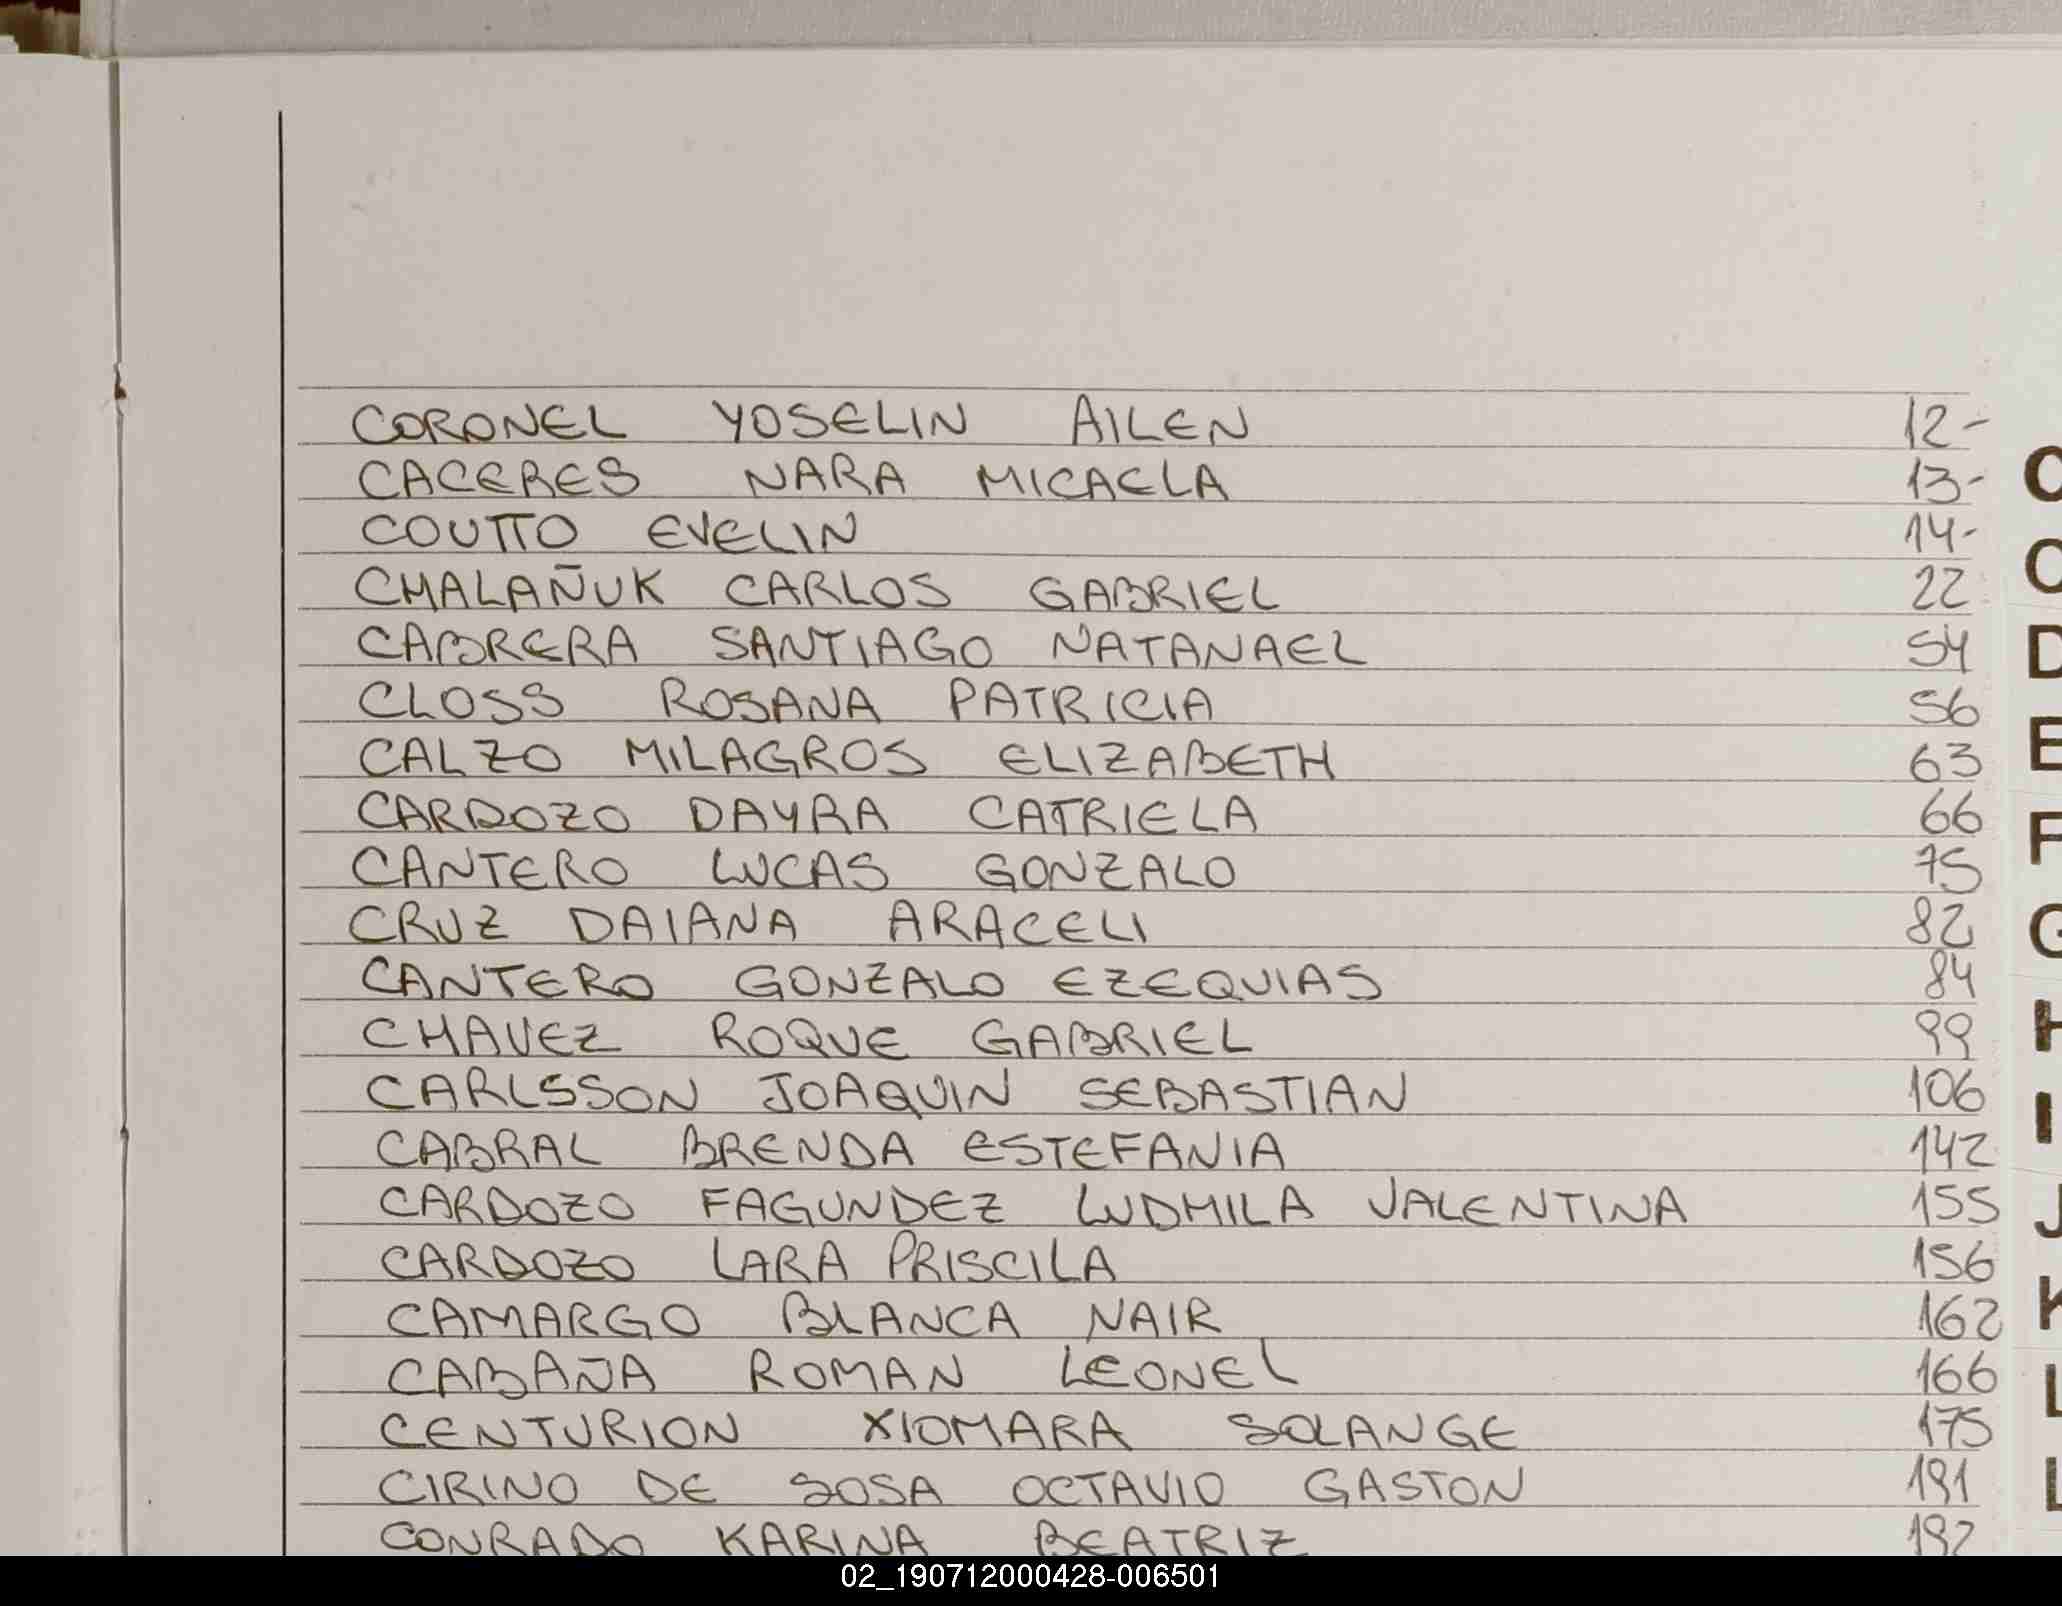 CORONEL YOSELIN AILEN 12-
CACERES NARA MICAELA 13-
COUTTO EVELIN 14-
CHALAÑUK CARLOS GABRIEL 22
CABRERA SANTIAGO NATANAEL 54
CLOSS ROSANA PATRICIA 56
CALZO MILAGROS ELIZABETH 63
CARDOZO DAYRA CATRIELA 66
CANTERO LUCAS GONZALO 75
CRUZ DAIANA ARACELI 82
CANTERO GONZALO EZEQUIAS 84
CHAVEZ ROQUE GABRIEL 99
CARLSSON JOAQUIN SEBASTIAN 106
CABRAL BRENDA ESTEFANIA 142
CARDOZO FAGUNDEZ LUDMILA VALENTINA 155
CARDOZO LARA PRISCILA 156
CAMARGO BLANCA NAIR 162
CABAÑA ROMAN LEONEL 166
CENTURION XIOMARA SOLANGE 175
CIRINO DE SOSA OCTAVIO GASTON 191
CONRADO KARINA BEATRIZ 192
D
E
F
G
H
I
J
K
L
02_190712000428-006501